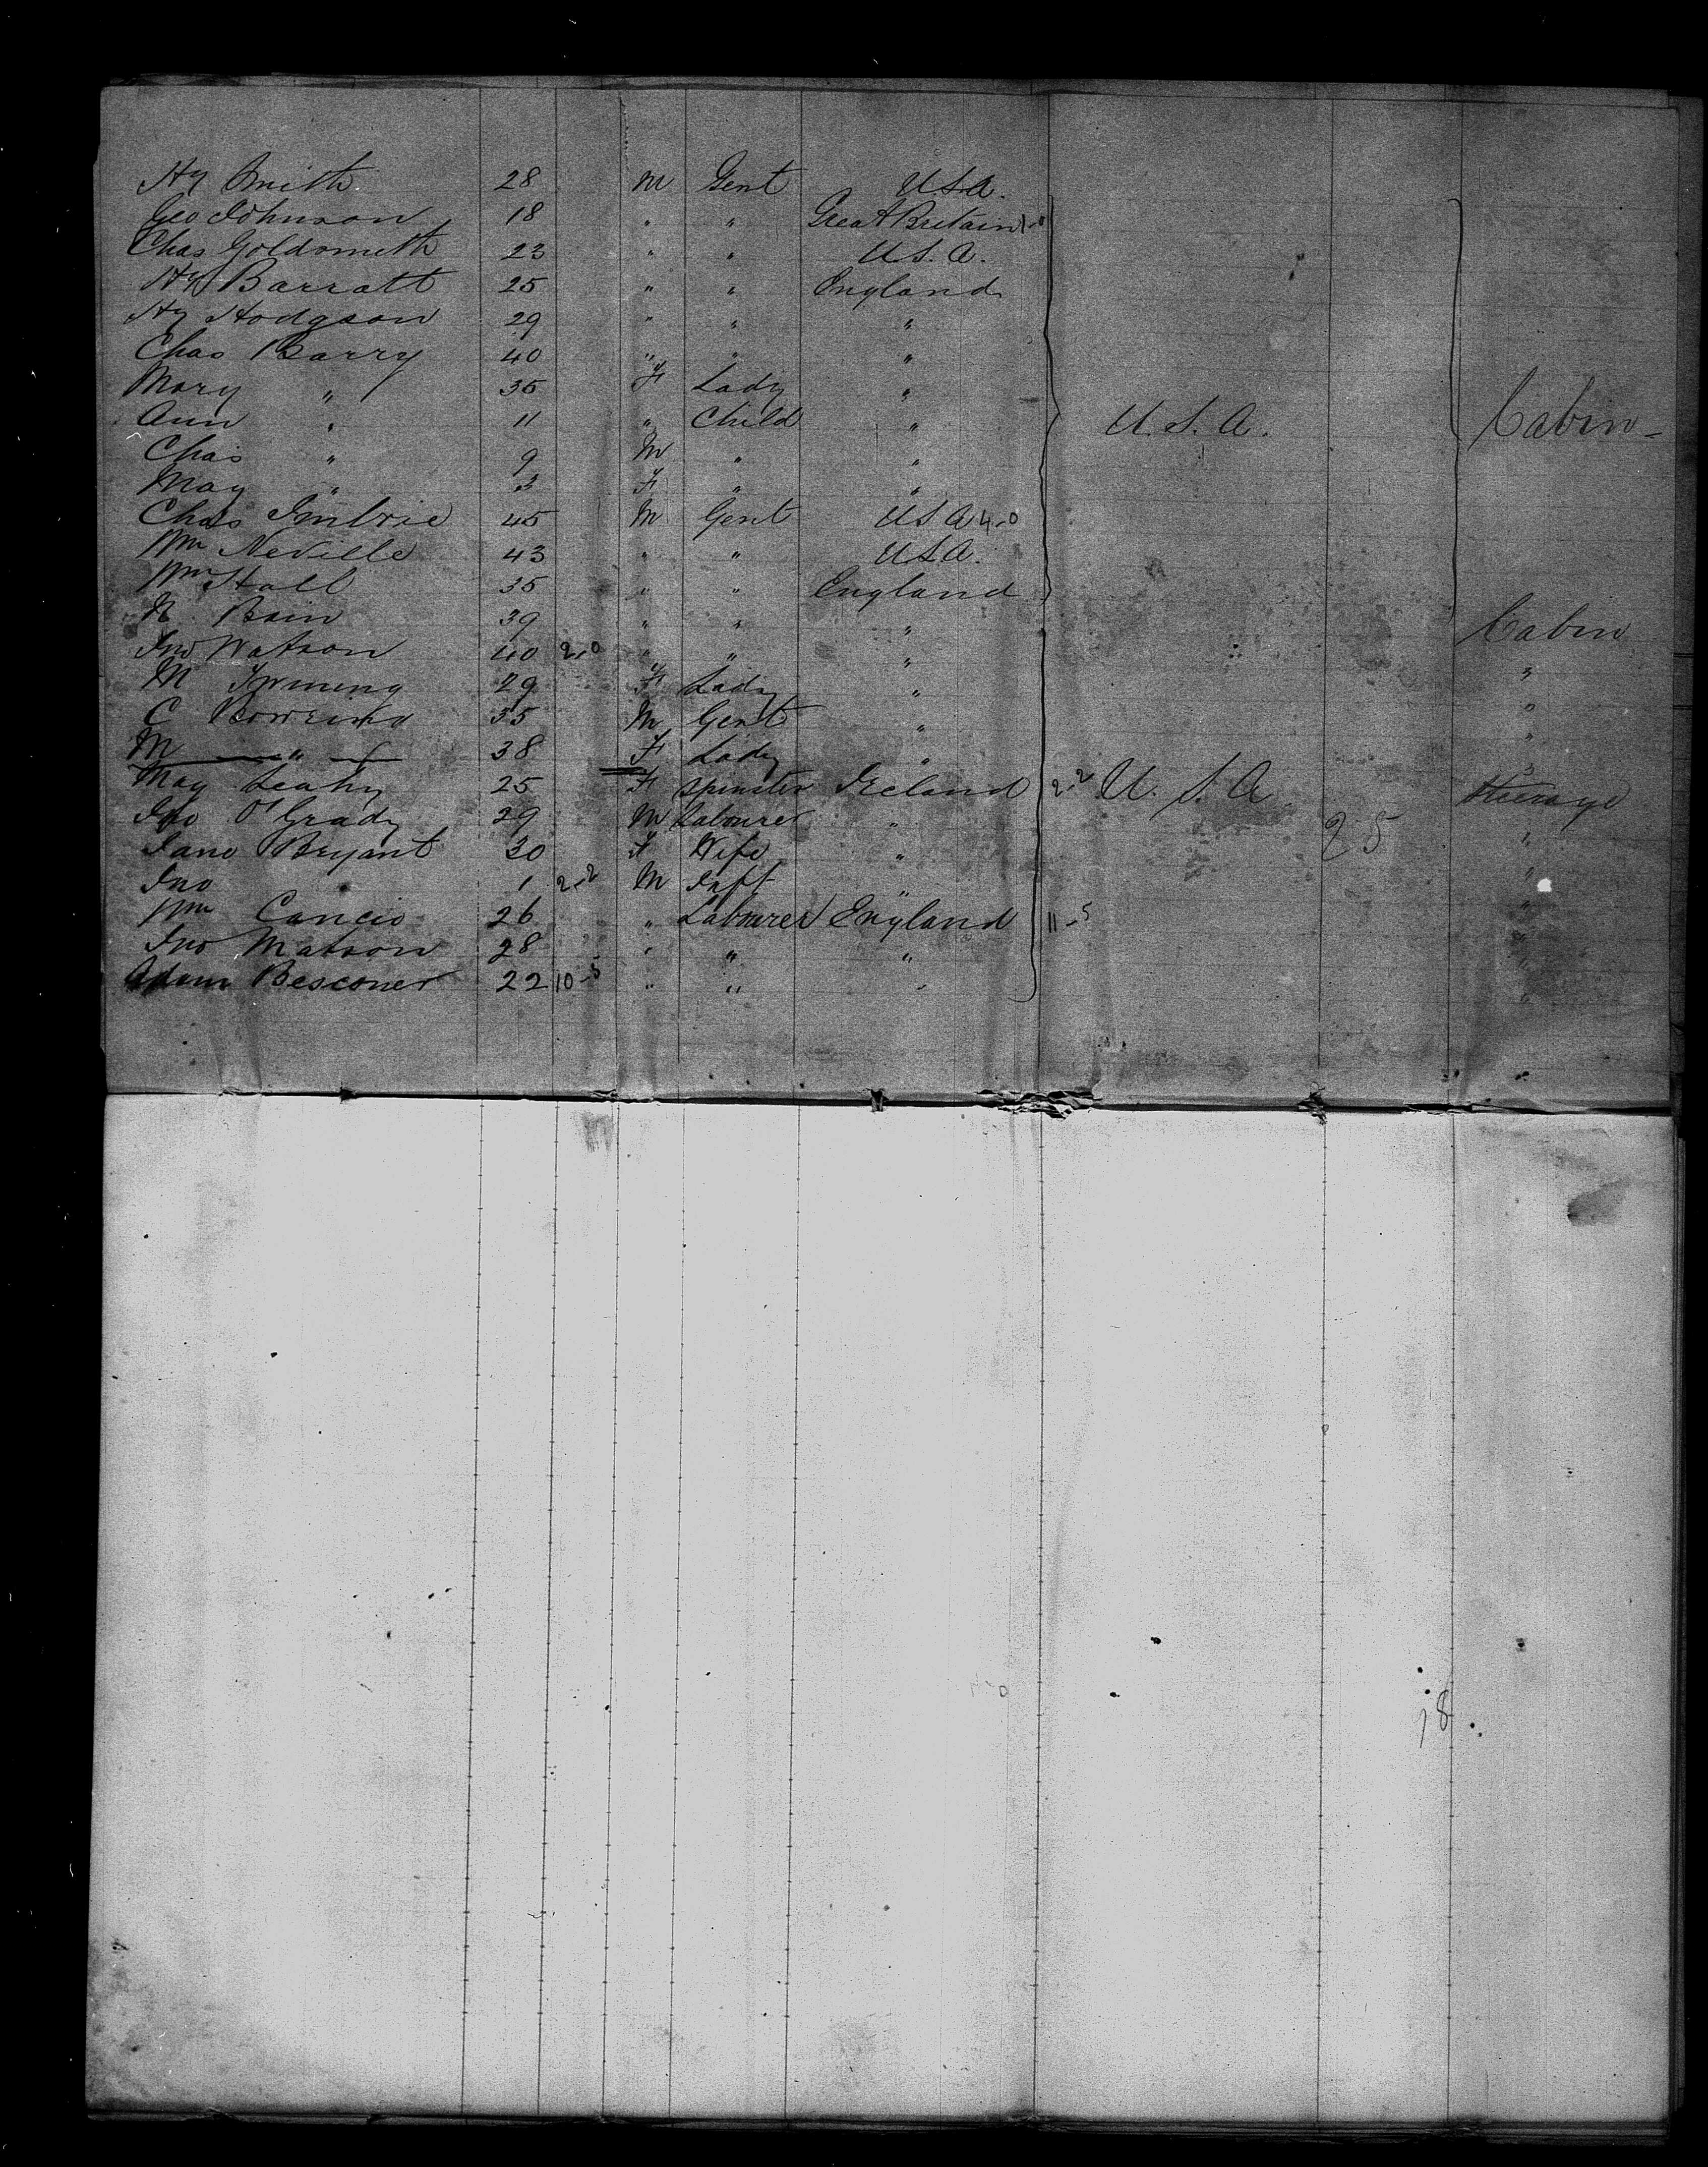 Hy Smith 28 M Gent USA.
Geo Johnson 18 " " Great Britain 1-0
Chas Goldsmith 23 " " U.S.A.
Hy Barratt 25 " " England
Hy Hodgson 29 " " "
Chas Barry 40 " " "
Mary " 35 F Lady "
Ann " 11 " Child " U.S.A. Cabin
Chas " 9 M " "
May " 3 F " "
Chas Imbrie 45 M Gent USA 4-0
Wm Neville 43 " " USA.
Wm Hall 35 " " England
R Bain 39 " " " Cabin
Jno Watson 40 2-0 " " " "
M 29 F Lady " "
C 35 M Gent " "
M " 38 F Lady " "
May Leahy 25 F Spinster Ireland 2-2 U.S.A. Steerage
Jno O'Grady 29 M Labourer " 25 "
Jane Bryant 30 F Wife " "
Jno 1 2-2 M Inft " "
Wm 26 " Labourer England 11-5 "
Jno Matson 28 " " " "
Adam Besconer 22 10-5 " " " "
18